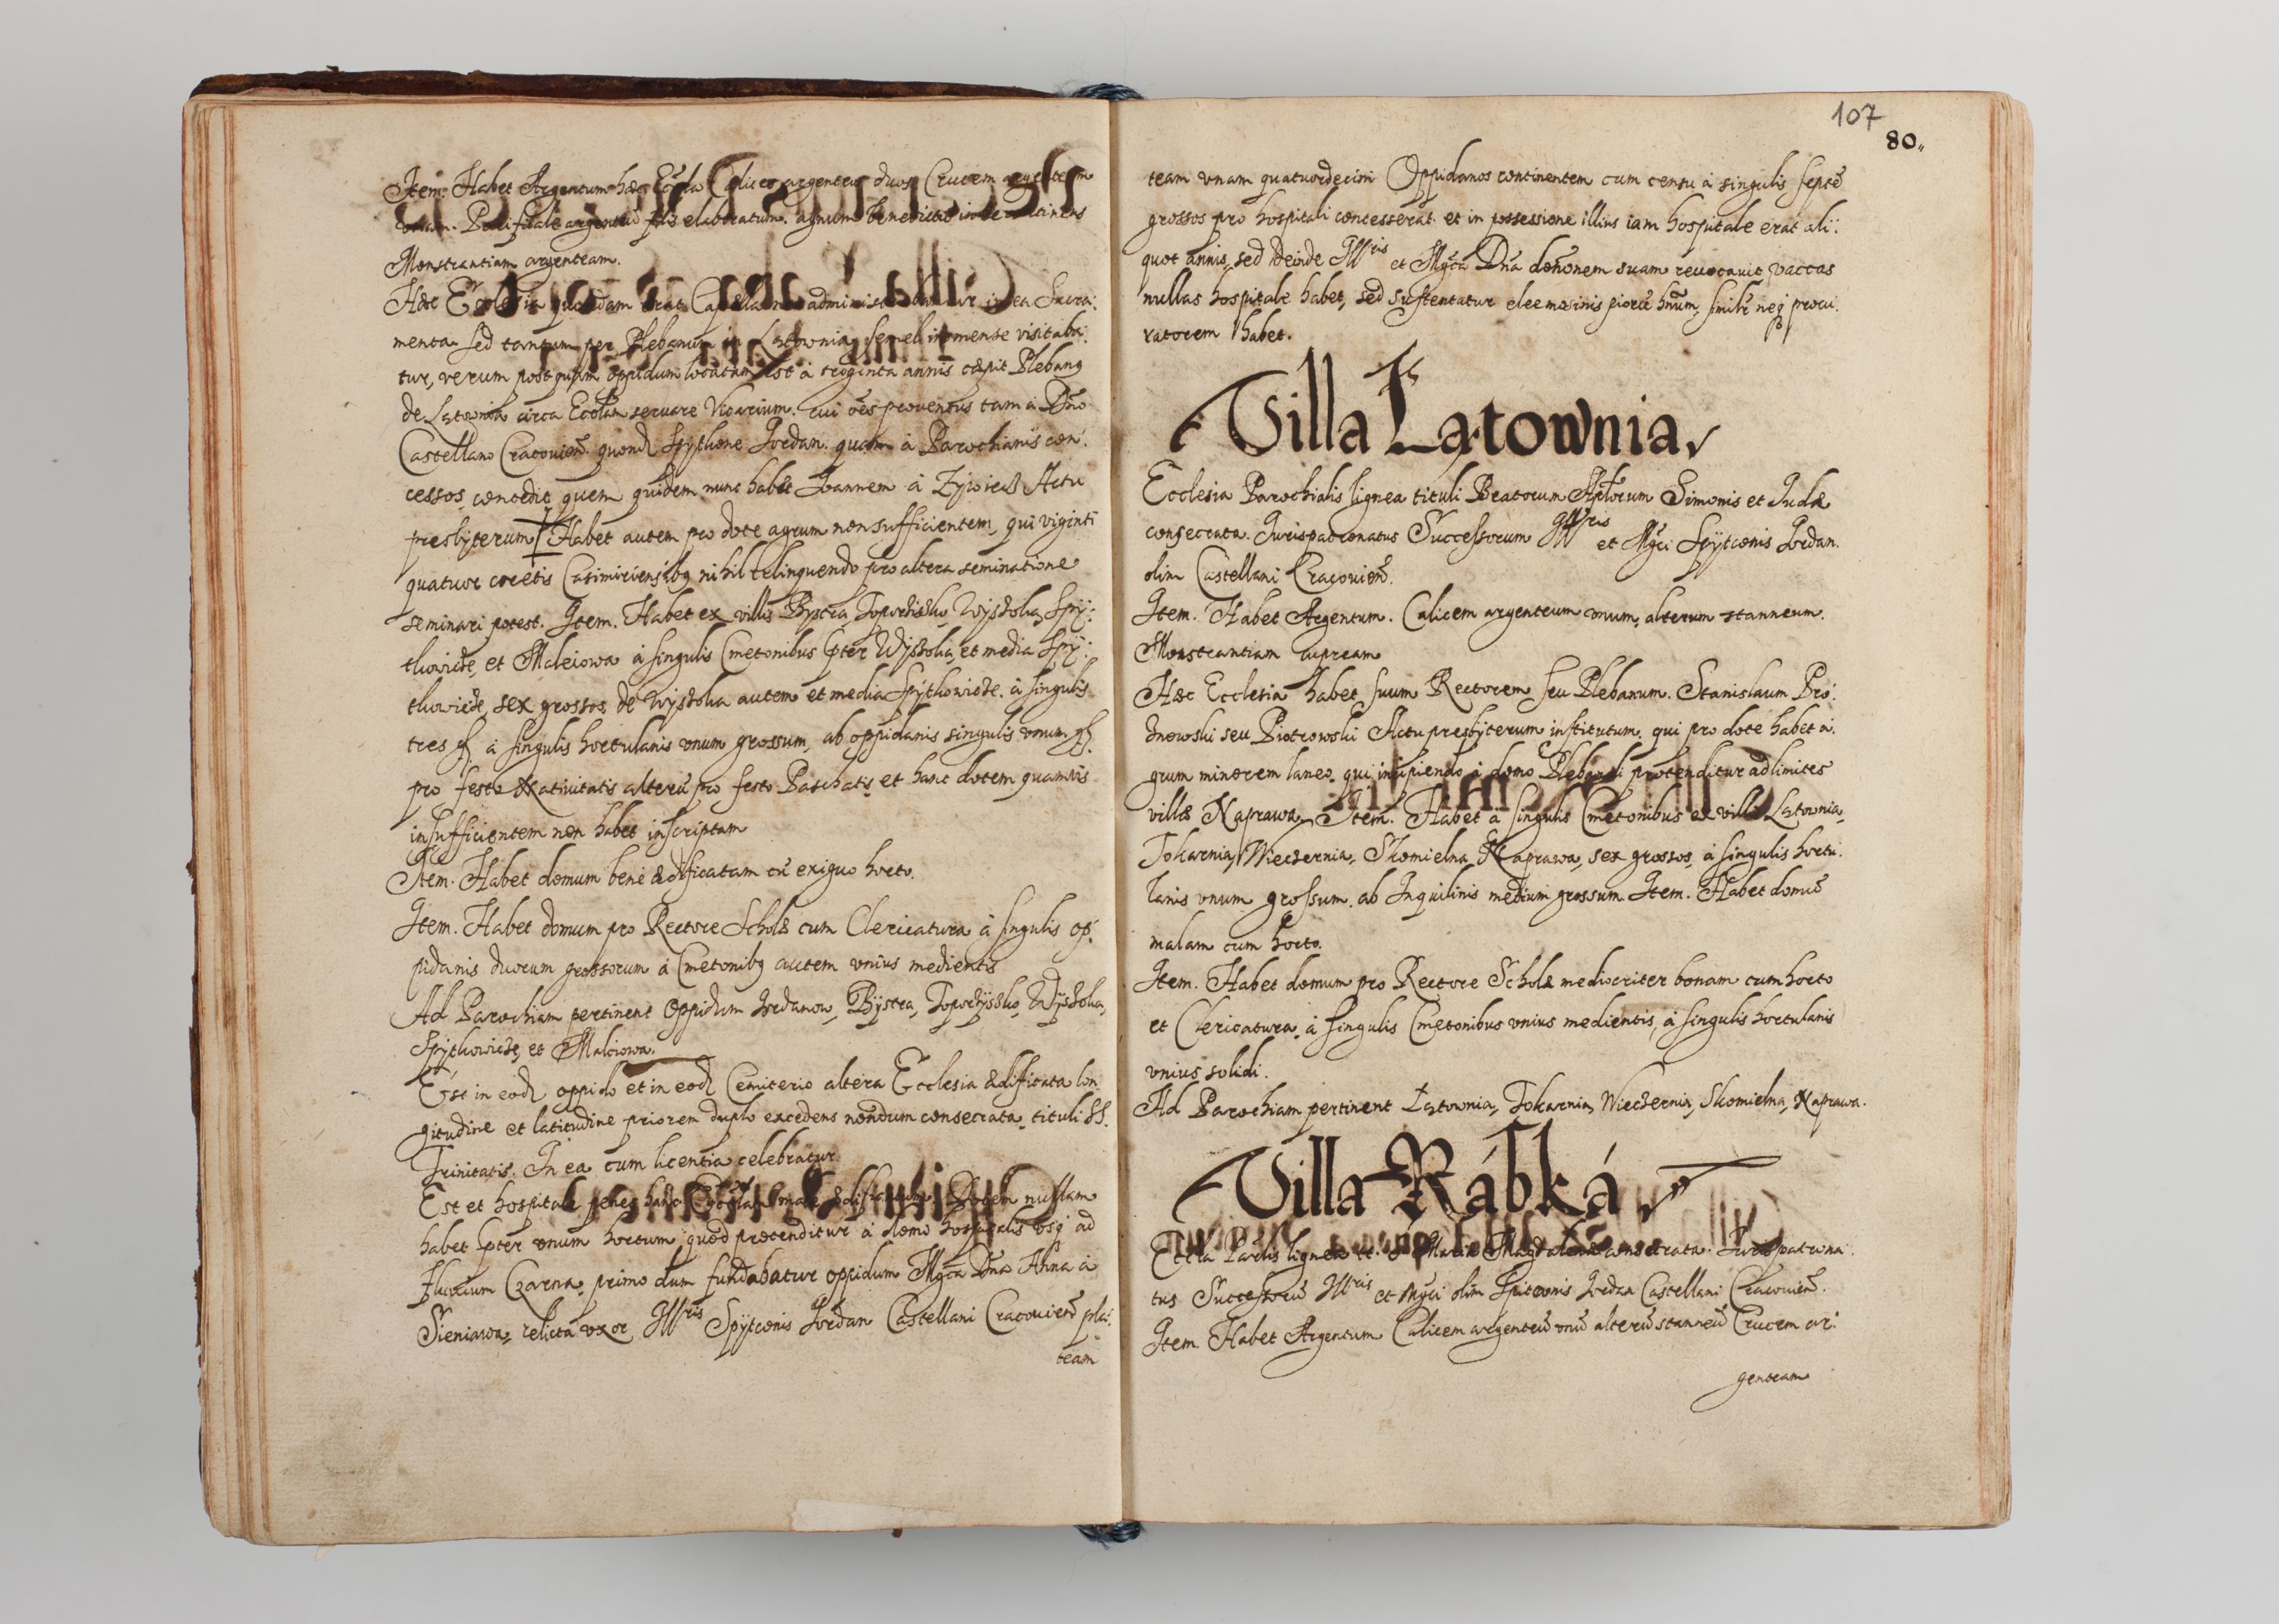 Item. Habet Argentum hæc Eccła Calices argenteos duos Crucem argenteam
vnam. Pacificale argenteū filis elaboratum. agnum benedictū in se continens
Monstrantiam argenteam.
Hæc Ecclesia quondam erat Capella nec administrabantur in ea Sacra:
menta sed tantum per Plebanum in Łętownia semel in mense visitaba:
tur, verum postquam oppidum locatum est à triginta annis cæpit Plebang
de Łętownia circa Ecclām seruare Vicarium. cui oēs prouentus tam à Dño
Castellano Cracouień. quond Spythone Jordan. quam à Parochianis con:
cessos concedit quem quidem nunc habet Joannem à Zywiecz Actu
presbyterum Habet autem pro dote agrum non sufficientem, qui viginti
quatuor coretis Casimiriensibg nihil relinquendo pro altera seminatione
seminari potest. Item. Habet ex villis Bystra, Toporzisko, Wysoka, Spy:
thowicze, et Maleiowa à singulis Cmetonibus ipter Wysoka, et media Spy:
thowicze, sex grossos, de Wysoka autem et media Spythowicze. à singulis
tres gs à singulis hortulanis vnum grossum, ab oppidanis singulis vnum gs.
pro festo Natiuitatis alterū pro festo Paschatis, et hanc dotem quamuis
insufficientem non habet inscriptam
Item. Habet domum benè ædificatam cū exiguo horto.
Item. Habet domum pro Rectore Scholæ cum Clericatura à singulis op:
pidanis duorum grossorum à Cmetonibg autem vnius medientis
Ad Parochiam pertinent Oppidum Jordanow, Bystra, Toporzysko, Wysoka,
Spythowicze, et Maleiowa.
Est in eod oppido et in eod Cemiterio altera Ecclesia ædificata lon:
gitudine et latitudine priorem duplo excedens nondum consecrata, tituli SS.
Trinitatis. In ea cum licentia celebratur.
Est et hospitale penes hanc Ecclām male ædificatum. Dotem nullam
habet ipter vnum hortum quod protenditur à domo hospitalis vsq ad
fluuium Czarna, primo dum fundabatur oppidum Mgca Dna Anna à
Sieniawa, relicta vxor Illris Spytconis Jordan Castellani Cracouień pla:
team
107
80„
team vnam quatuordecim Oppidanos continentem cum censu à singulis septē
grossos pro hospitali concesserat. et in possessione illius iam hospitale erat ali:
quot annis, sed deinde Illris et Mgca Dna donōnem suam reuocauit, vaccas
nullas hospitale habet, sed sustentatur eleemosinis piorū hnum, similr neq procu:
ratorem habet.
Villa Łętownia
Ecclesia Parochialis lignea tituli Beatorum Aplorum Simonis et Judæ
consecrata. Jurispatronatus Successorum Illris et Mgci Spytconis Jordan.
olim Castellani Cracouień.
Item. Habet Argentum. Calicem argenteum vnum, alterum stanneum.
Monstrantiam cupream
Hæc Ecclesia habet suum Rectorem seu Plebanum. Stanislaum Bro:
dnowski seu Piotrowski Actu presbyterum institutum. qui pro dote habet a:
grum minorem laneo, qui incipiendo à domo Plebanali protenditur ad limites
villæ Naprawa. Item. Habet à singulis Cmetonibus ex villis Łętownia,
Tokarnia, Wieczernia, Skomielna Naprawa, sex grossos, à singulis hortu:
lanis vnum grossum. ab Inquilinis medium grossum. Item. Habet domū
malam cum horto.
Item. Habet domum pro Rectore Scholæ mediocriter bonam cum horto
et Clericatura, à singulis Cmetonibus vnius medientis, à singulis hortulanis
vnius solidi.
Ad Parochiam pertinent Łętownia, Tokarnia, Wieczernia, Skomielna, Naprawa.
Villa Rábká
Eccla Parlis lignea tt. S. Mariæ Magdalenæ consecrata. Jurispatrona:
tus Successorū Illris et Mgci olim Spitconis Jordan Castellani Cracouień.
Item. Habet Argentum Calicem argenteū vnū alterū stanneū Crucem ar:
genteam